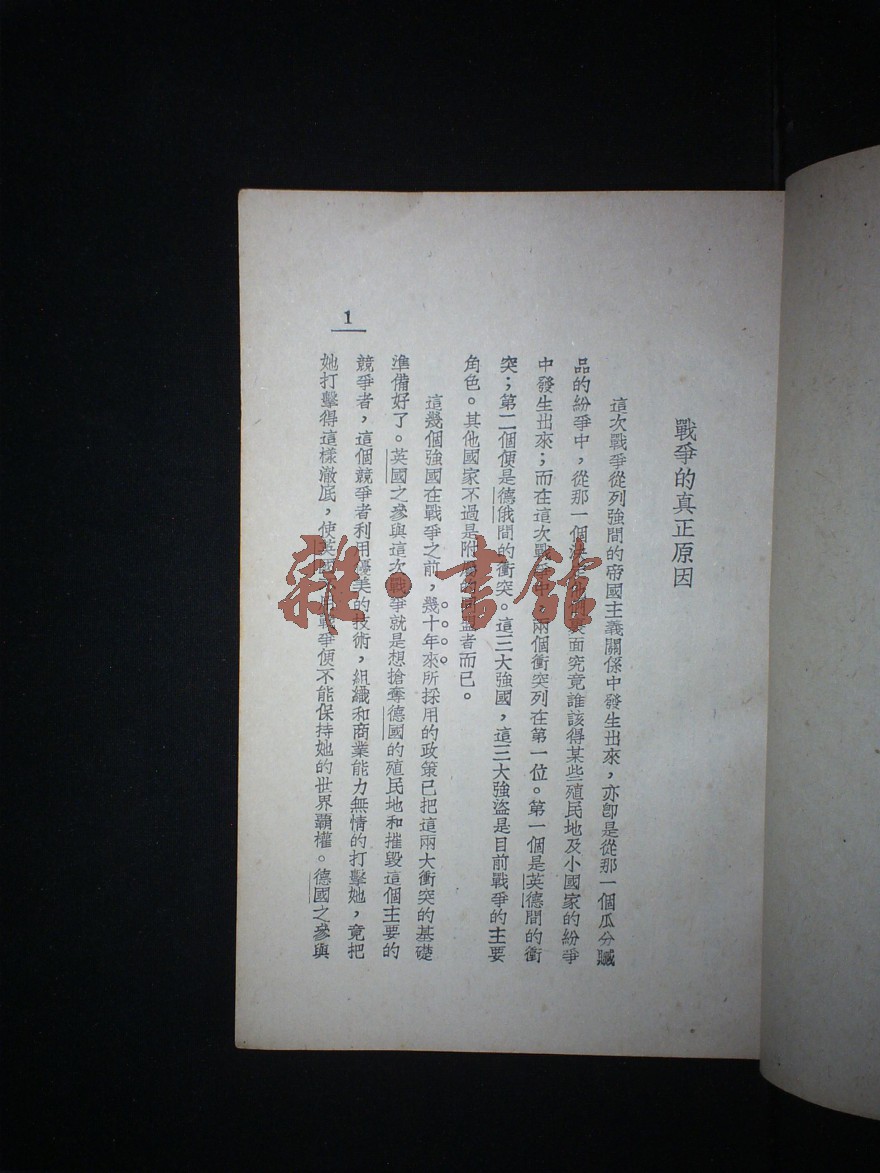 戰爭的真正原因
這次戰爭從列強間的帝國主義關係中發生出來，亦卽是從那一個瓜分贓
品的紛爭中，從那一個決定他們裏面究竟誰該得某些殖民地及小國家的紛爭
中發生出來；而在這次戰爭中，兩個衝突列在第一位。第一個是英德間的衝
突；第二個便是德俄間的衝突。這三大強國，這三大強盜是目前戰爭的主要
角色。其他國家不過是附屬的同盟者而已。
這幾個強國在戰爭之前，幾十年來所採用的政策已把這兩大衝突的基礎
準備好了。英國之參與這次戰爭就是想搶奪德國的殖民地和摧毀這個主要的
競爭者，這個競爭者利用優美的技術，組織和商業能力無情的打擊她，竟把
她打擊得這樣澈底，使英國不用戰爭便不能保持她的世界霸權。德國之參與
1
雜·書館